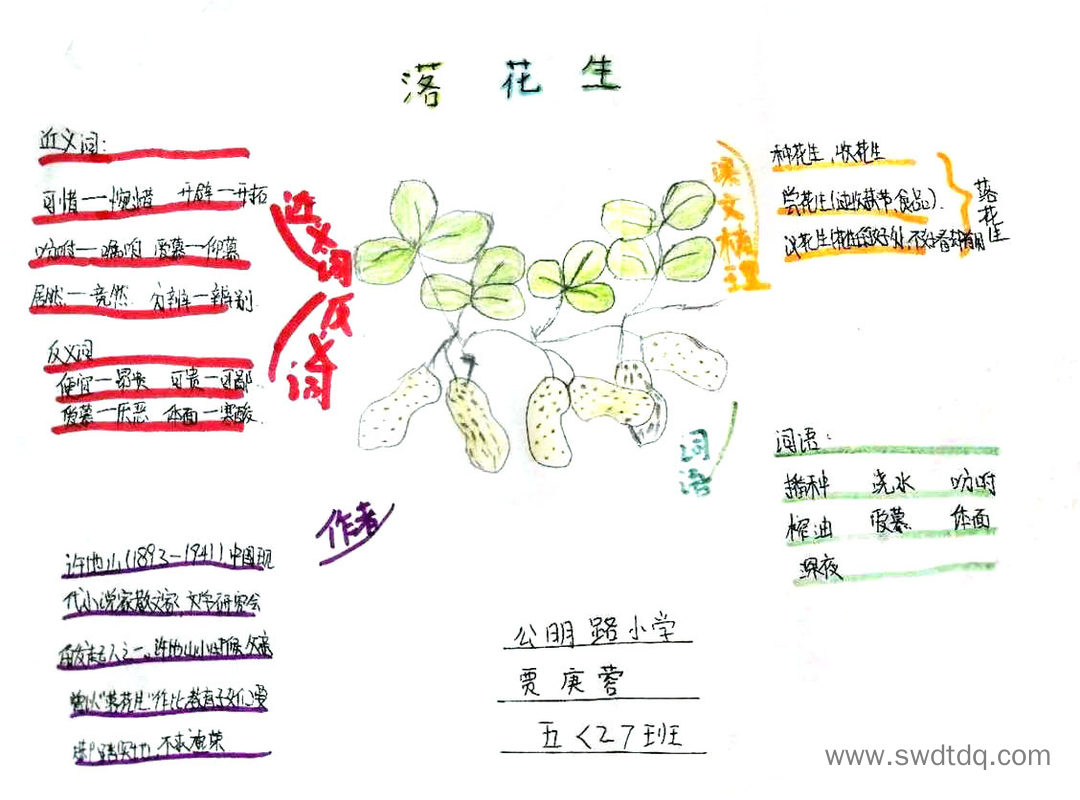 落花生
近义词:
可惜一惋惜 开辟一开拓
吩咐一嘱咐 爱慕一仰慕
居然一竟然 分辨一辨别
反义词
便宜一昂贵 可贵一可鄙
爱慕一厌恶 体面一寒酸
近义词
反义词
课文梳理
种花生、收花生
尝花生(过收获节,食品)
议花生(花生的好处,不好看却有用
落花生
词语
词语:
播种 浇水 吩咐
榨油 爱慕 体面
深夜
作者
许地山(1893一1941)中国现
代小说家散文家,文学研究会
发起人之一,许地山小时候父亲
曾以"落花生"作比教育子女们要
踏实, 不求虚荣
公明路小学
贾庚蓉
五<27班
www.swdtdq.com